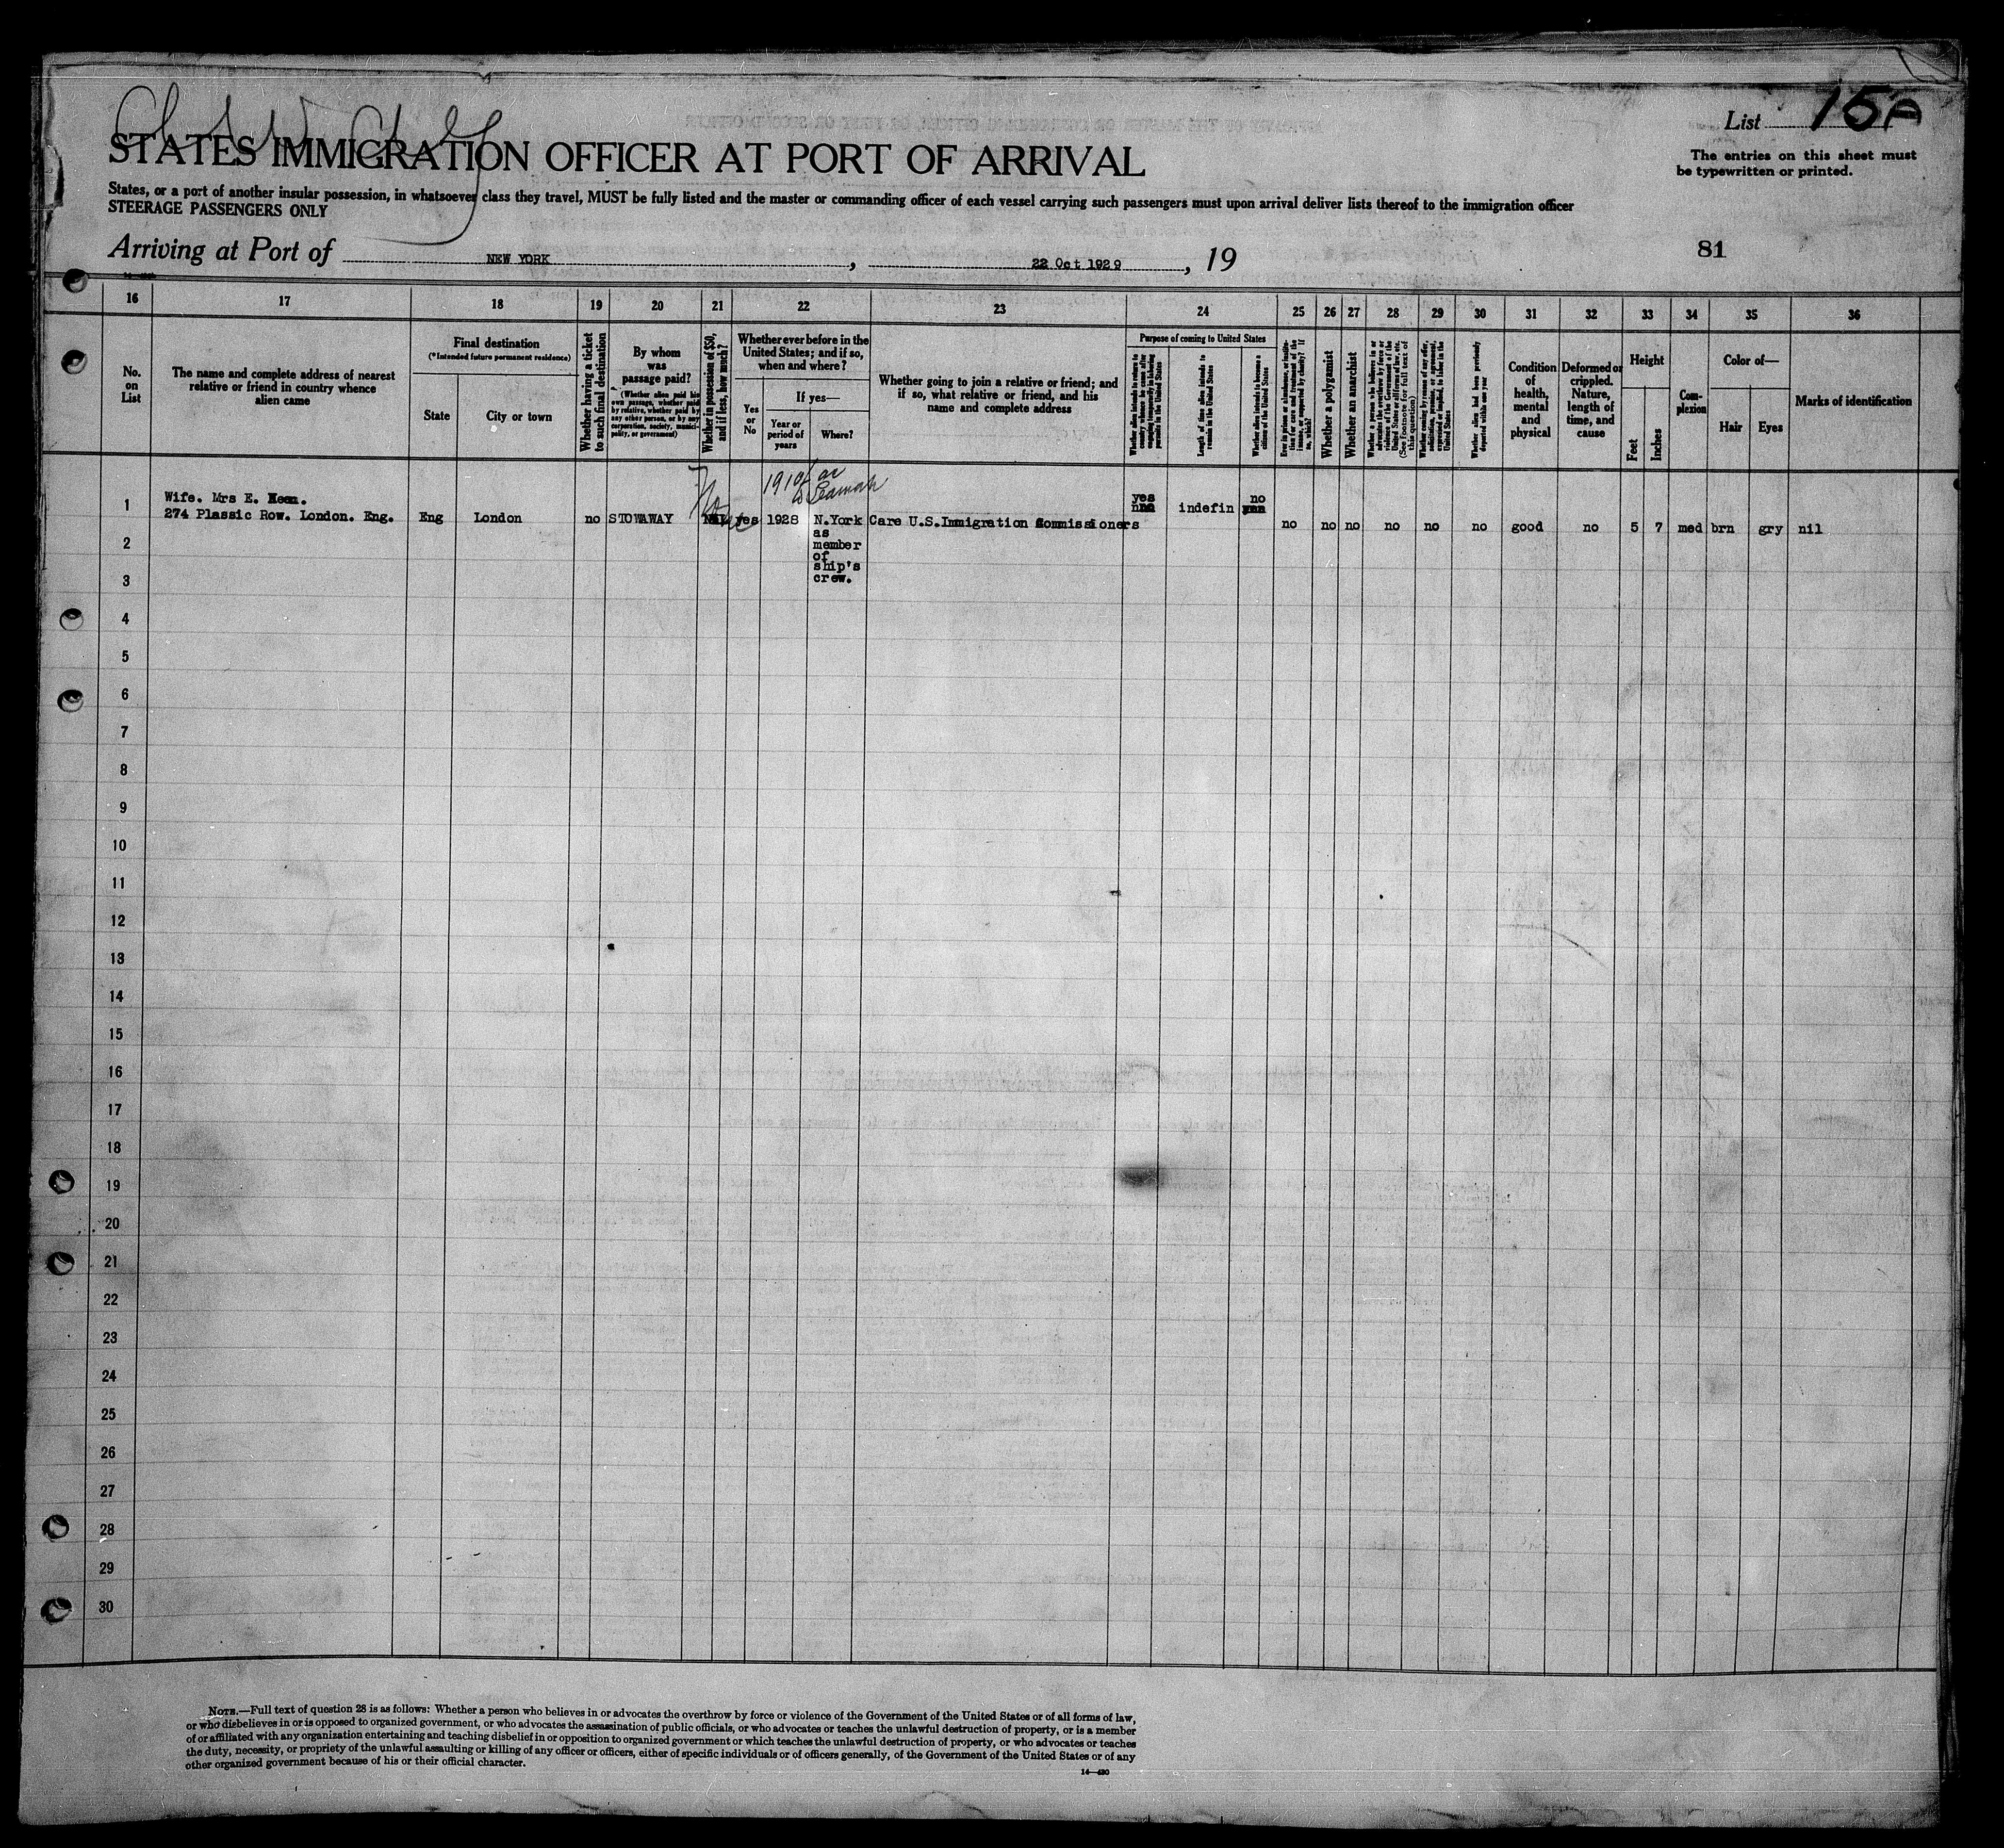 List 15A
STATES IMMIGRATION OFFICER AT PORT OF ARRIVAL
The entries on this sheet must
be typewritten or printed.
States, or a port of another insular possession, in whatsoever class they travel, MUST be fully listed and the master or commanding officer of each vessel carrying such passengers must upon arrival deliver lists thereof to the immigration officer
STEERAGE PASSENGERS ONLY
Arriving at Port of NEW YORK, 22 Oct 1929, 19
81
16 17 18 19 20 21 22 23 24 25 26 27 28 29 30 31 32 33 34 35 36
No.
on
List
The name and complete address of nearest
relative or friend in country whence
alien came
Final destination
(*Intended future permanent residence)
State
City or town
Whether having a ticket
to such final destination
By whom
was
passage paid?
(Whether alien paid his
own passage, whether paid
by relative, whether paid by
any other person, or by any
corporation, society, munici-
pality, or government)
Whether in possession of $50,
and if less, how much?
Whether ever before in the
United States; and if so,
when and where?
Yes
or
No
If yes—
Year or
period of
years
Where?
Whether going to join a relative or friend; and
if so, what relative or friend, and his
name and complete address
Purpose of coming to United States
Whether alien intends to return to
country whence he came after
engaging temporarily in laboring
pursuits in the United States
Length of time alien intends to
remain in the United States
Whether alien intends to become a
citizen of the United States
Ever in prison or almshouse, or institu-
tion for care and treatment of the
insane, or supported by charity? If
so, which?
Whether a polygamist
Whether an anarchist
Whether a person who believes in or
advocates the overthrow by force or
violence of the Government of the
United States or all forms of law, etc.
(See footnote for full text of
this question)
Whether coming by reason of any offer,
solicitation, promise, or agreement,
expressed or implied, to labor in the
United States
Whether alien had been previously
deported within one year
Condition
of
health,
mental
and
physical
Deformed or
crippled.
Nature,
length of
time, and
cause
Height
Feet
Inches
Com-
plexion
Color of—
Hair
Eyes
Marks of identification
1910/ as
Seaman
None
1
Wife. Mrs E. Keen.
274 Plassic Row. London. Eng.
Eng London no STOWAWAY yes 1928 N.York
as
member
of
ship's
crew.
Care U.S.Immigration Commissioners
yes indefin no
no no no no no no good no 5 7 med brn gry nil
2
3
4
5
6
7
8
9
10
11
12
13
14
15
16
17
18
19
20
21
22
23
24
25
26
27
28
29
30
NOTE.—Full text of question 28 is as follows: Whether a person who believes in or advocates the overthrow by force or violence of the Government of the United States or of all forms of law,
or who disbelieves in or is opposed to organized government, or who advocates the assassination of public officials, or who advocates or teaches the unlawful destruction of property, or is a member
of or affiliated with any organization entertaining and teaching disbelief in or opposition to organized government or which teaches the unlawful destruction of property, or who advocates or teaches
the duty, necessity, or propriety of the unlawful assaulting or killing of any officer or officers, either of specific individuals or of officers generally, of the Government of the United States or of any
other organized government because of his or their official character.
14—430